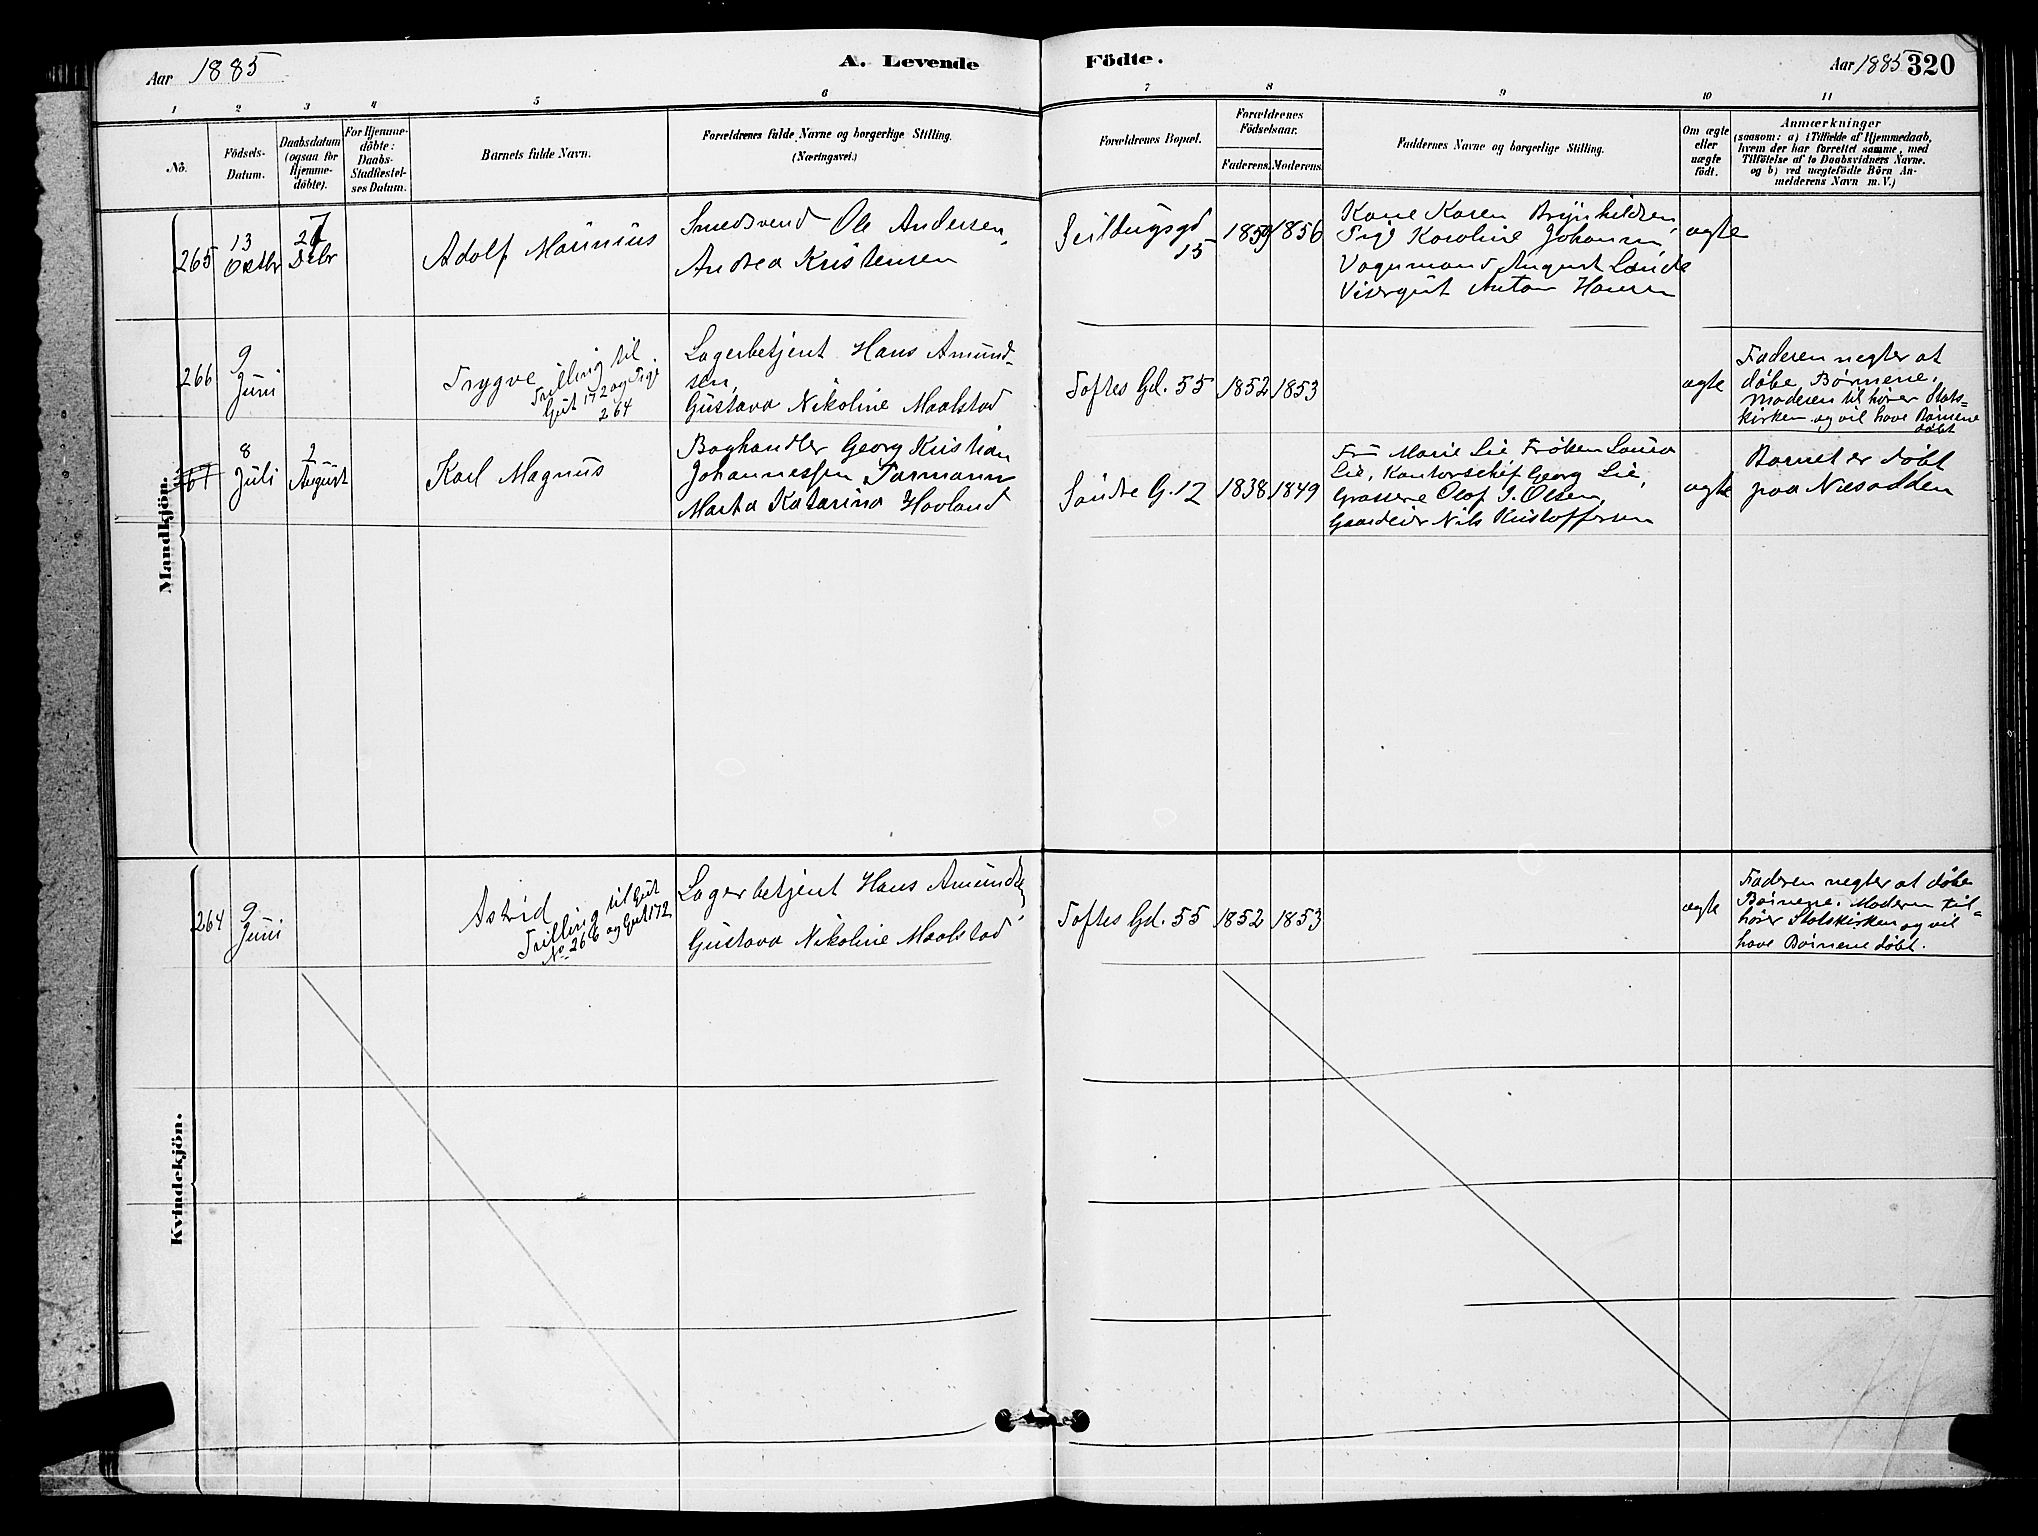 Aar 1885
A. Levende Födte.
Aar 1885 320
1 2 3 4 5 6 7 8 9 10 11
Nö.
Födsels-
Datum.
Daabsdatum
(ogsaa for
Hjemme-
döbte).
For Hjemme-
döbte:
Daabs-
Stadfæstel-
ses Datum.
Barnets fulde Navn.
Forældrenes fulde Navne og borgerlige Stilling.
(Næringsvei.)
Forældrenes Bopæl.
Forældrenes
Födselsaar.
Faderens.
Moderens.
Faddernes Navne og borgerlige Stilling.
Om ægte
eller
uægte
födt.
Anmærkninger
(saasom: a) i Tilfælde af Hjemmedaab,
hvem der har forrettet samme, med
Tilföielse af to Daabsvidners Navne.
og b) ved uægtefödte Börn An-
melderens Navn m. V.)
Mandkjön.
265
13
Octbr
27
Debr
Adolf Maurinius
Smedsvend Ole Andersen,
Andrea Kristensen
Seildugsgd
15
1859
1856
Kone Karen Brynhildsen,
Pige Karoline Johansen
Vognmand August Lande
Visergut Anton Hansen
ægte
266
9
Juni
Trygve
Trilling til
Gut 172 og Pige
264
Lagerbetjent Hans Amund-
sen,
Gustava Nikoline Maalstad
Toftes Gd. 55
1852
1853
ægte
Faderen negter at
døbe Børnene.
Moderen tilhører Stats-
kirken og vil have Børnene
døbt
267
8
Juli
2
August
Karl Magnus
Boghandler Georg Kristian
Johannessen Parmann
Marta Katarina Hovland
Søndre G. 12
1838
1849
Fru Marie Lie Frøken Laura
Lie, Kontorchef Georg Lie,
Grosserer Olaf J. Olsen,
Gaardeier Nils Kristoffersen
ægte
Barnet er døbt
paa Næsodden
Kvindekjön.
264
9
Juni
Astrid
Trilling til Gut
No. 266 og Gut 172
Lagerbetjent Hans Amunds
Gustava Nikoline Maalstad
Toftes Gd. 55
1852
1853
ægte
Faderen negter at døbe
Børnene. Moderen til-
hører Statskirken og vil
have Børnene døbt.